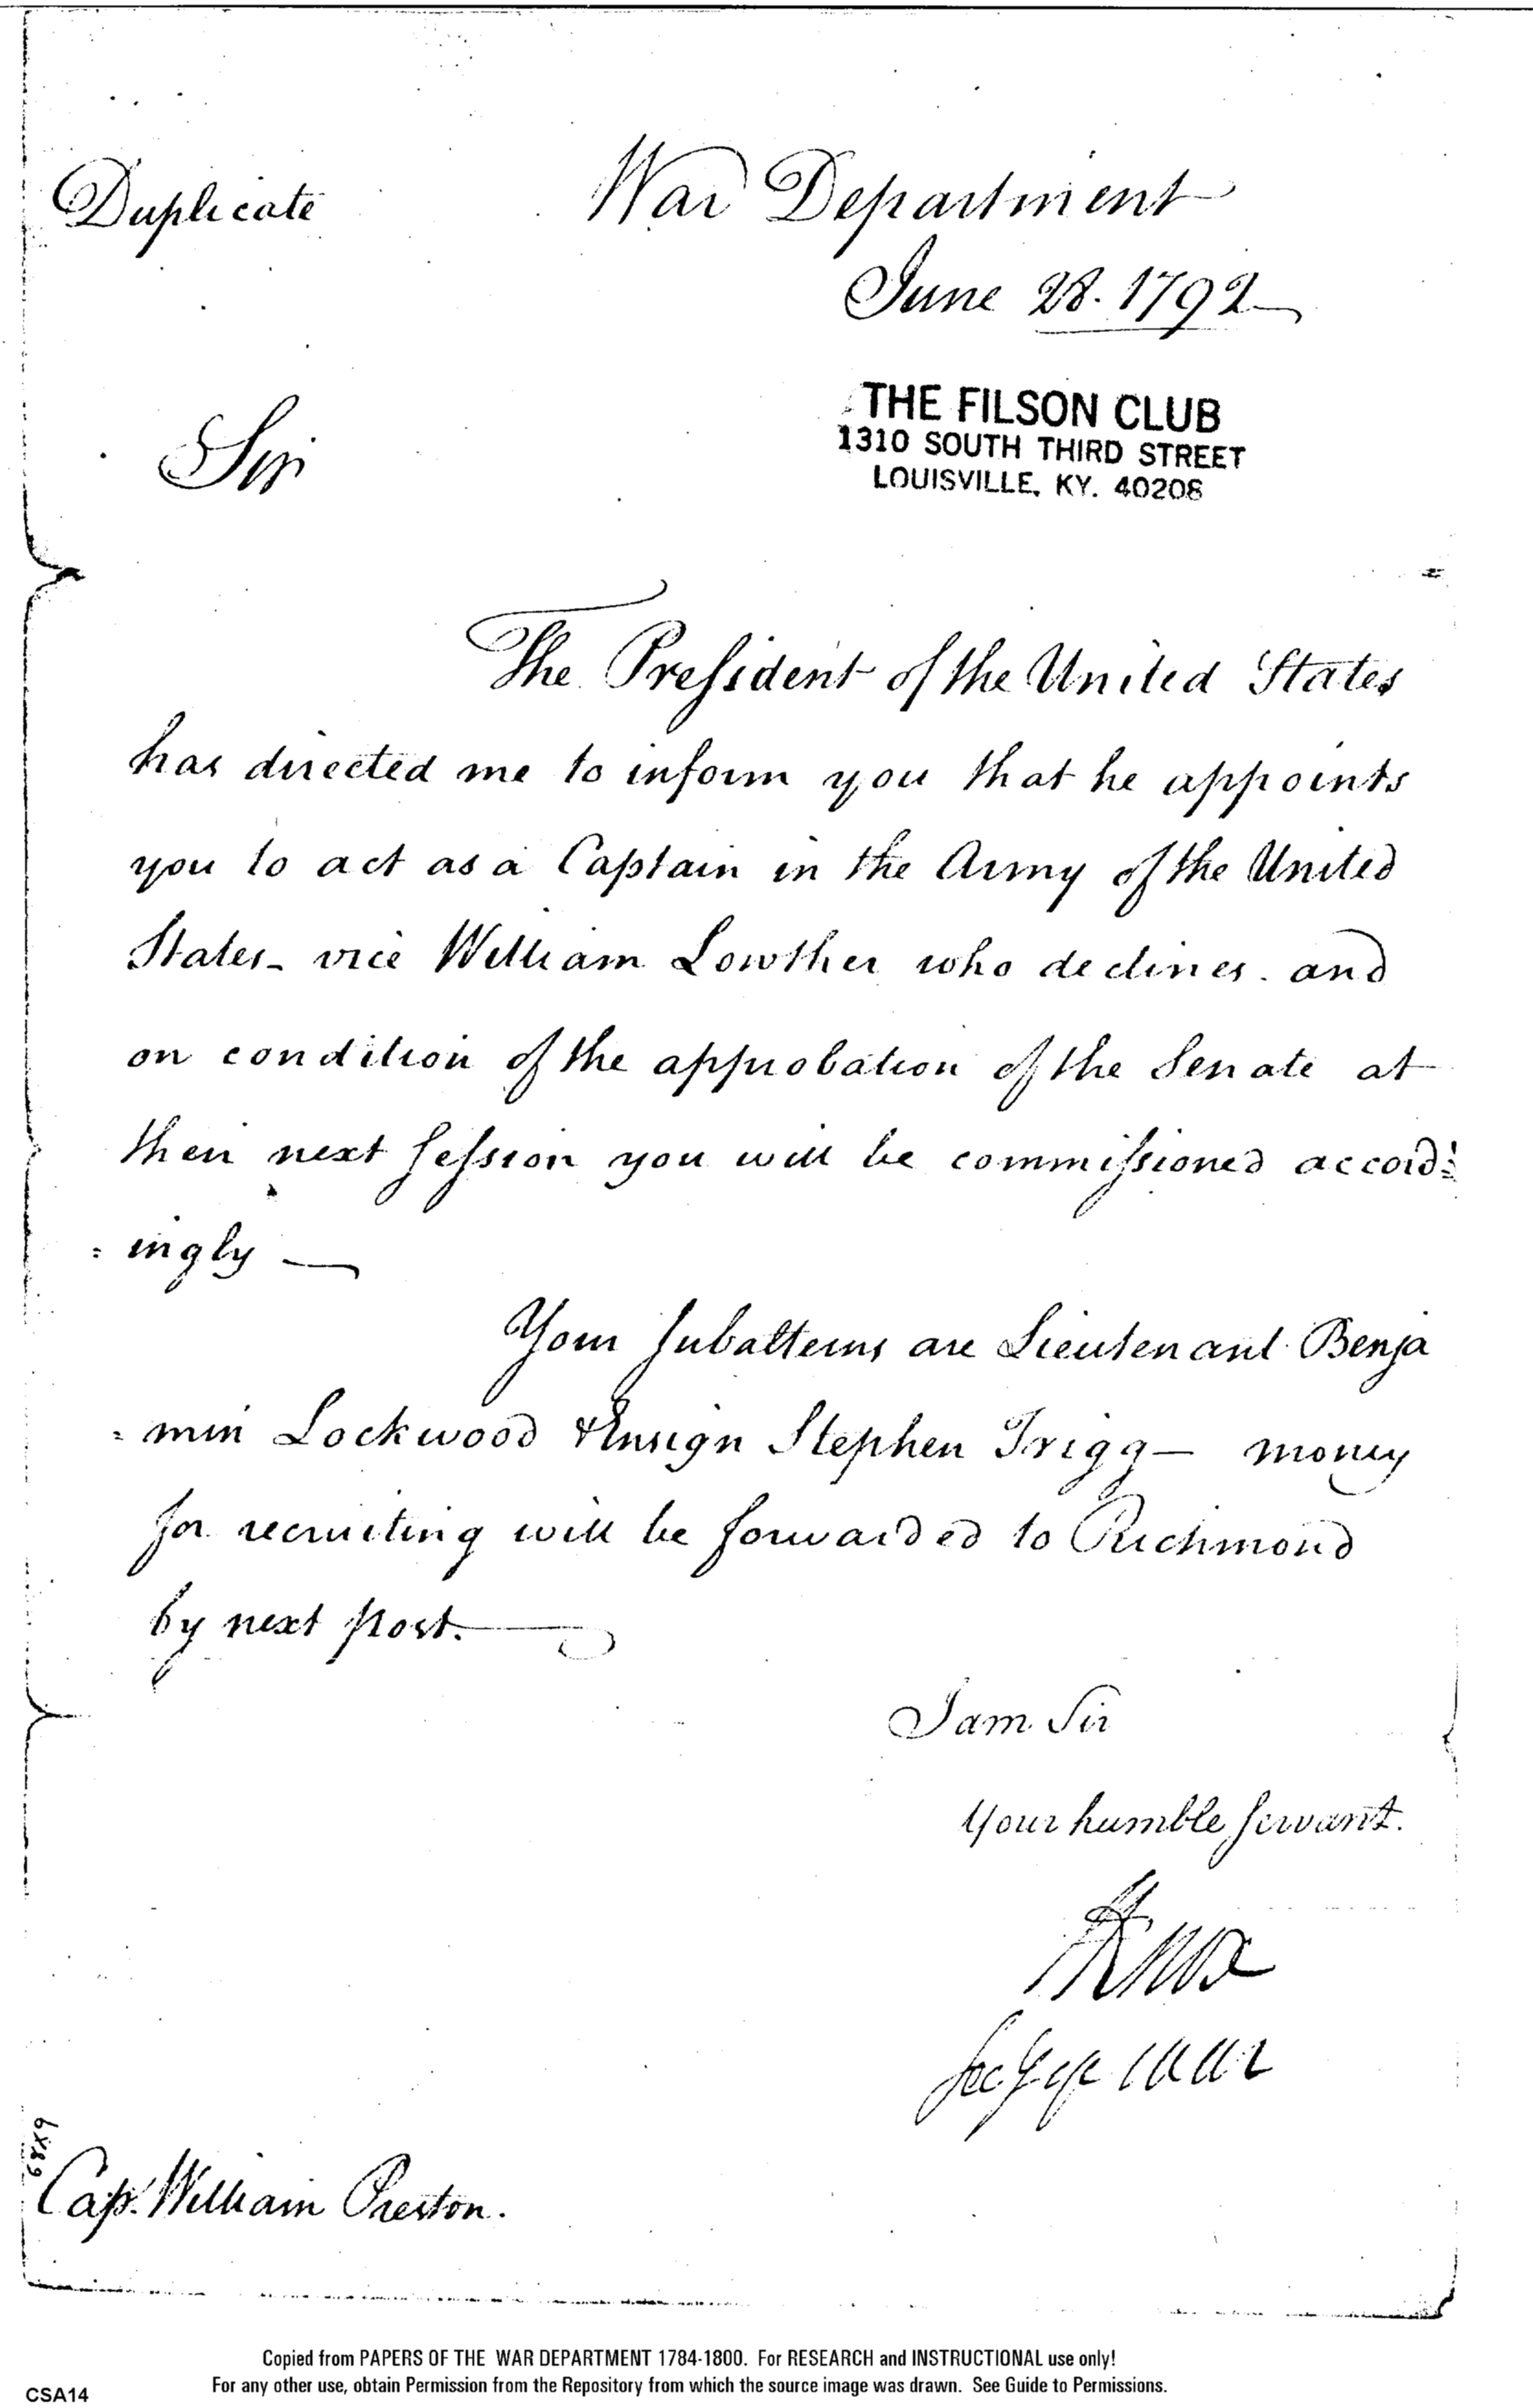 Duplicate
War Department
June 28. 1792
THE FILSON CLUB
1310 SOUTH THIRD STREET
LOUISVILLE, KY. 40208
Sir
The President of the United States
has directed me to inform you that he appoints
you to act as a Captain in the Army of the United
States - vice William Lowther who declines. and
on condition of the approbation of the Senate at
their next Session you will be commissioned accord=
=ingly —
Your Subalterns are Lieutenant Benja
=min Lockwood & Ensign Stephen Trigg — money
for recruiting will be forwarded to Richmond
by next post. —
I am Sir
Your humble Servant.
HKnox
Secy of War
6x89
Capt. William Preston.
Copied from PAPERS OF THE WAR DEPARTMENT 1784-1800. For RESEARCH and INSTRUCTIONAL use only!
For any other use, obtain Permission from the Repository from which the source image was drawn. See Guide to Permissions.
CSA14